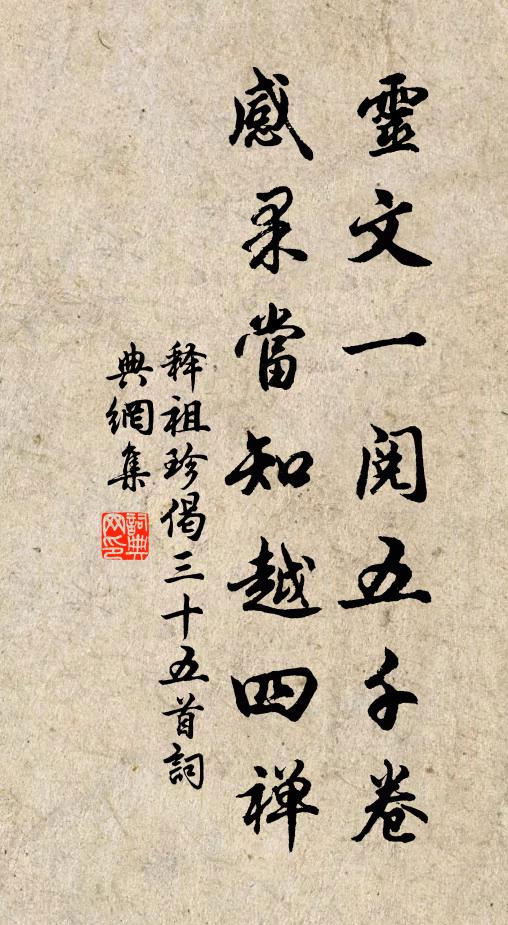 靈文一閱五千卷
感果當知越四禅
释祖珍偈三十五首詞
典網集
詞典网印